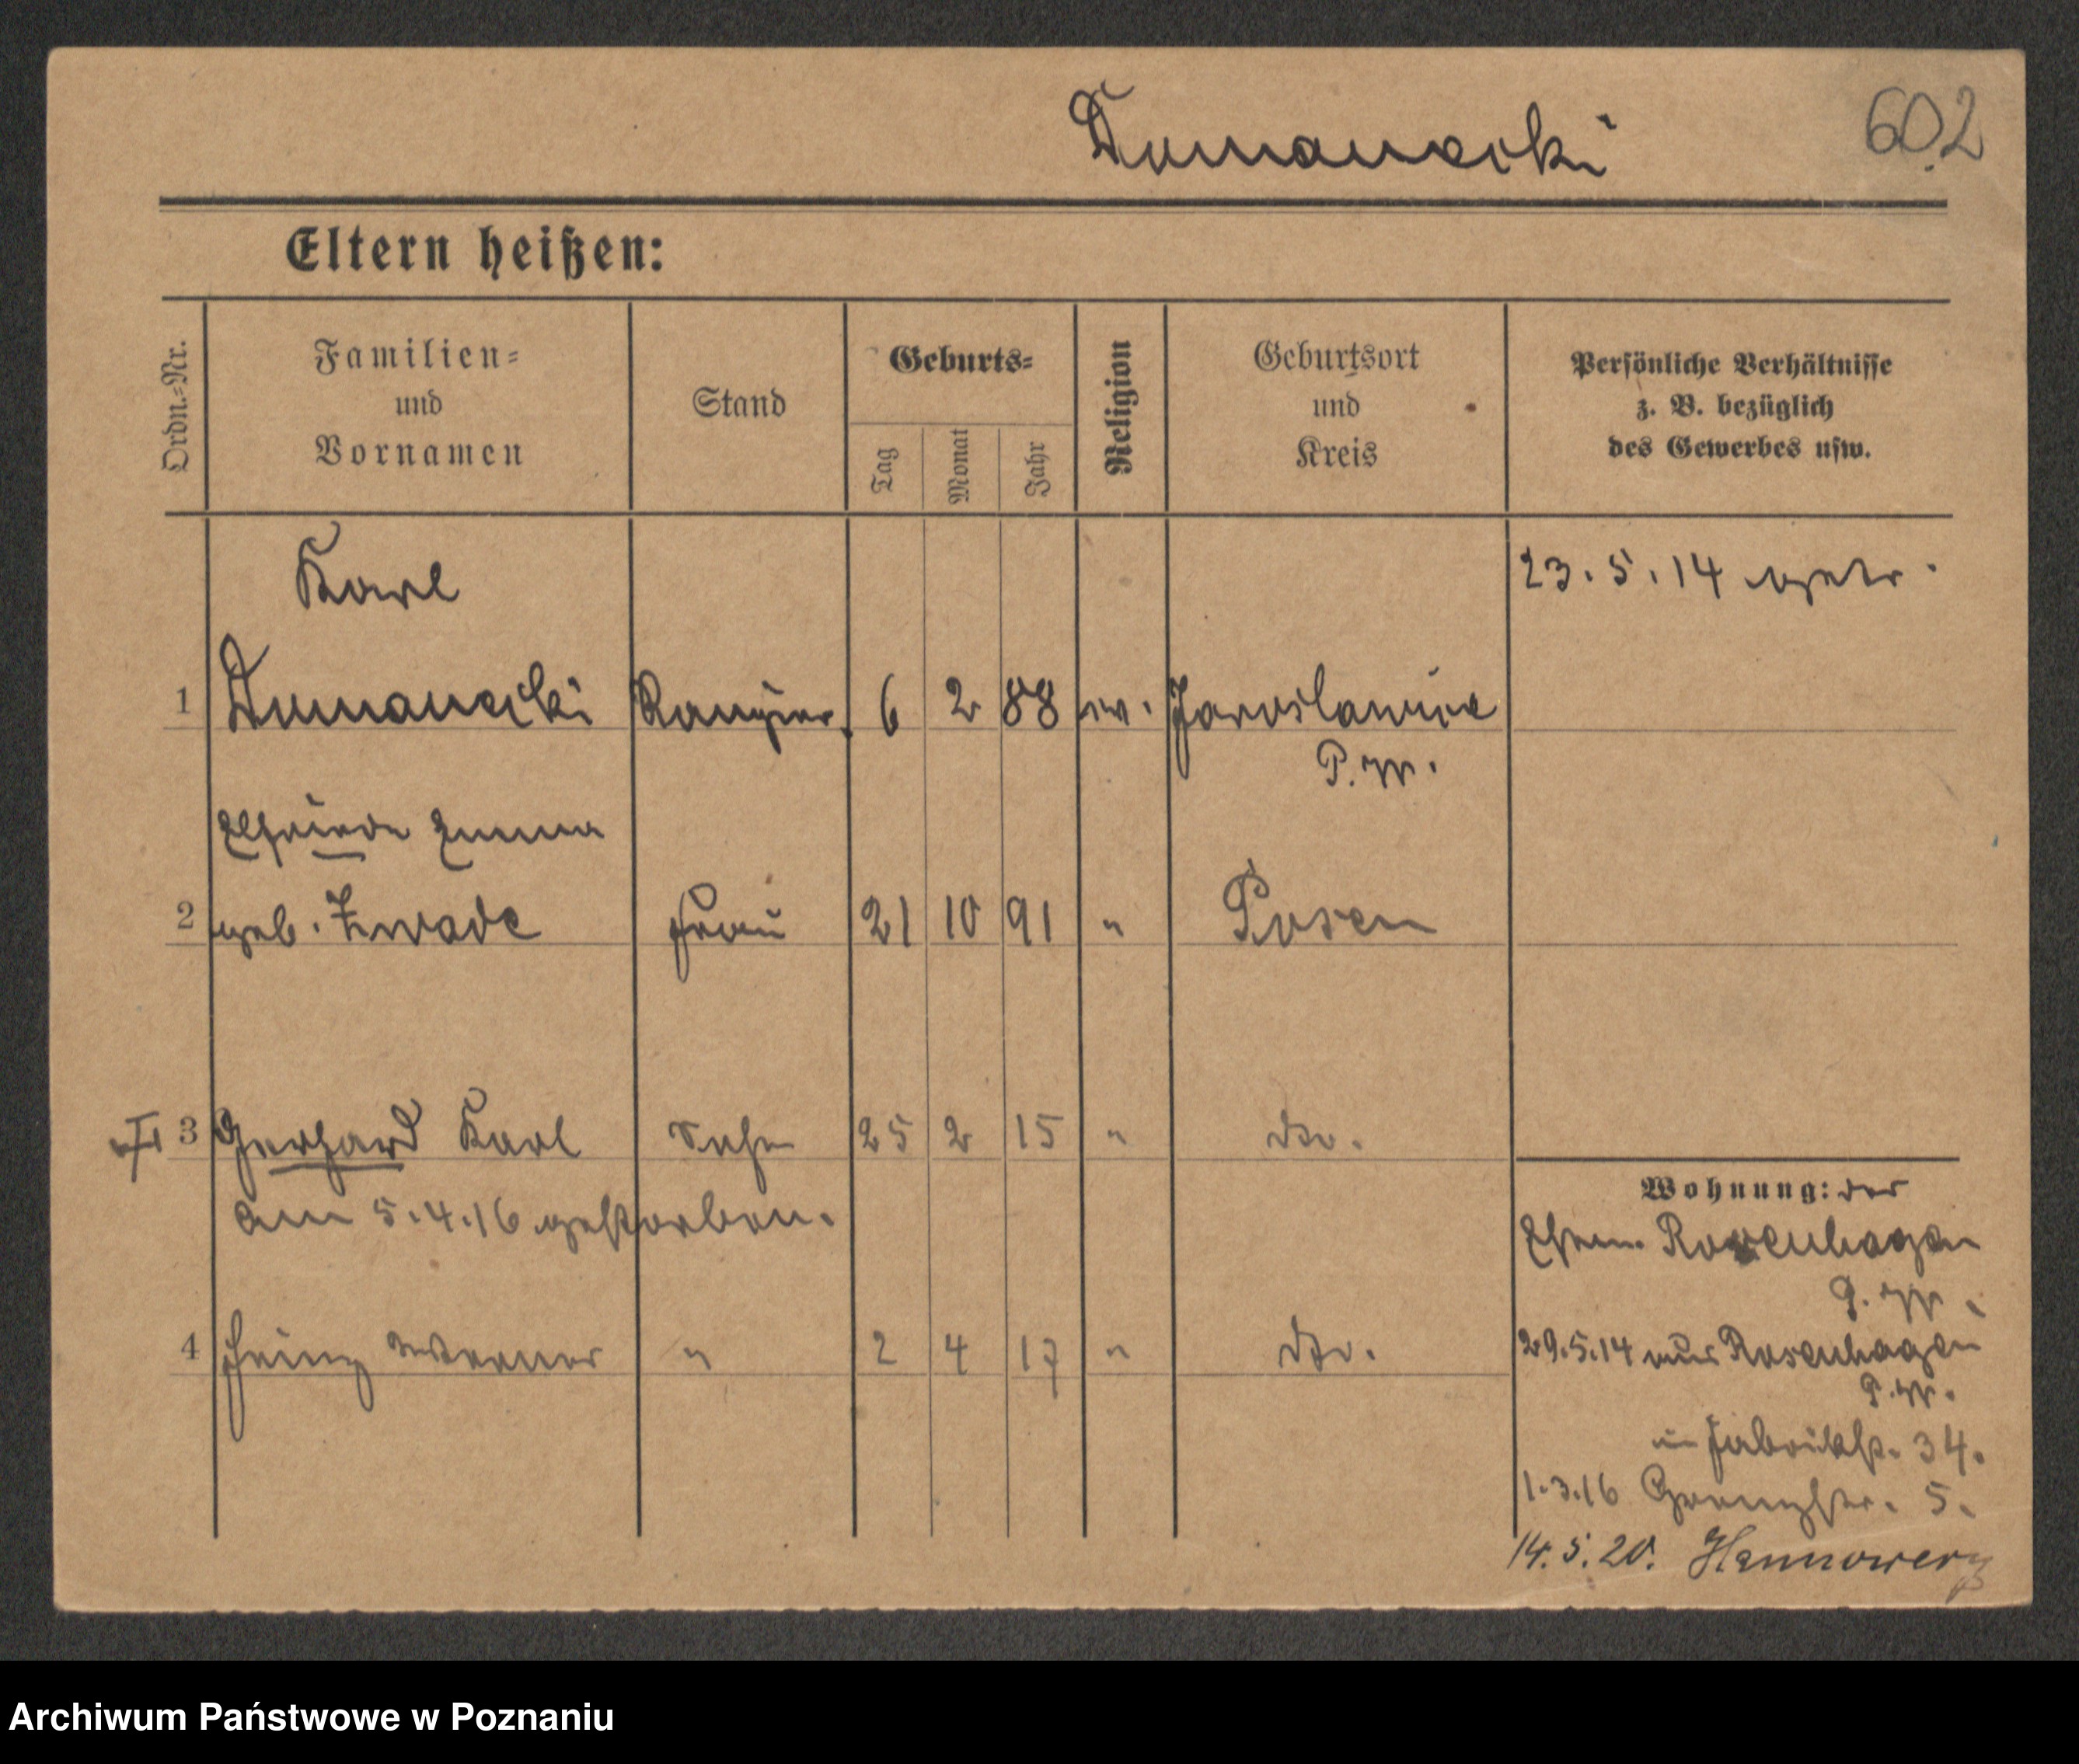 Dumanski
602
Eltern heißen:
Ordn.-Nr.
Familien- und Vornamen
Stand
Geburts-
Tag
Monat
Jahr
Religion
Geburtsort und Kreis
Persönliche Verhältnisse
z. B. bezüglich
des Gewerbes usw.
Karl
23.5.14 getr.
1 Dumanski Rangier. 6 2 88 ev. Jaroslawice
P. W.
Elfriede Emma
2 geb. Zwade Frau 21 10 91 " Posen
3 Gerhard Karl Sohn 25 2 15 " dto.
am 5.4.16 gestorben.
Wohnung: der
Ehem. Rosenhagen
P. W.
4 Heinz Werner " 2 4 17 " dto.
29.5.14 aus Rosenhagen
P. W.
in Fabrikstr. 34.
1.3.16 Grenzstr. 5.
14.5.20. Hannower
Archiwum Państwowe w Poznaniu